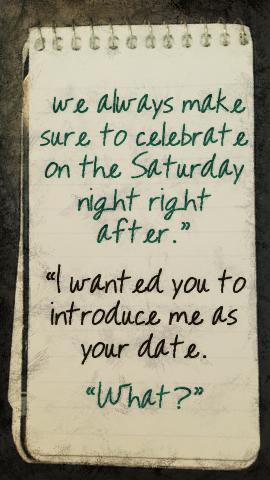 we always make
sure to celebrate
on the Saturday
night right
after.”
“I wanted you to
introduce me as
your date.
“What?”